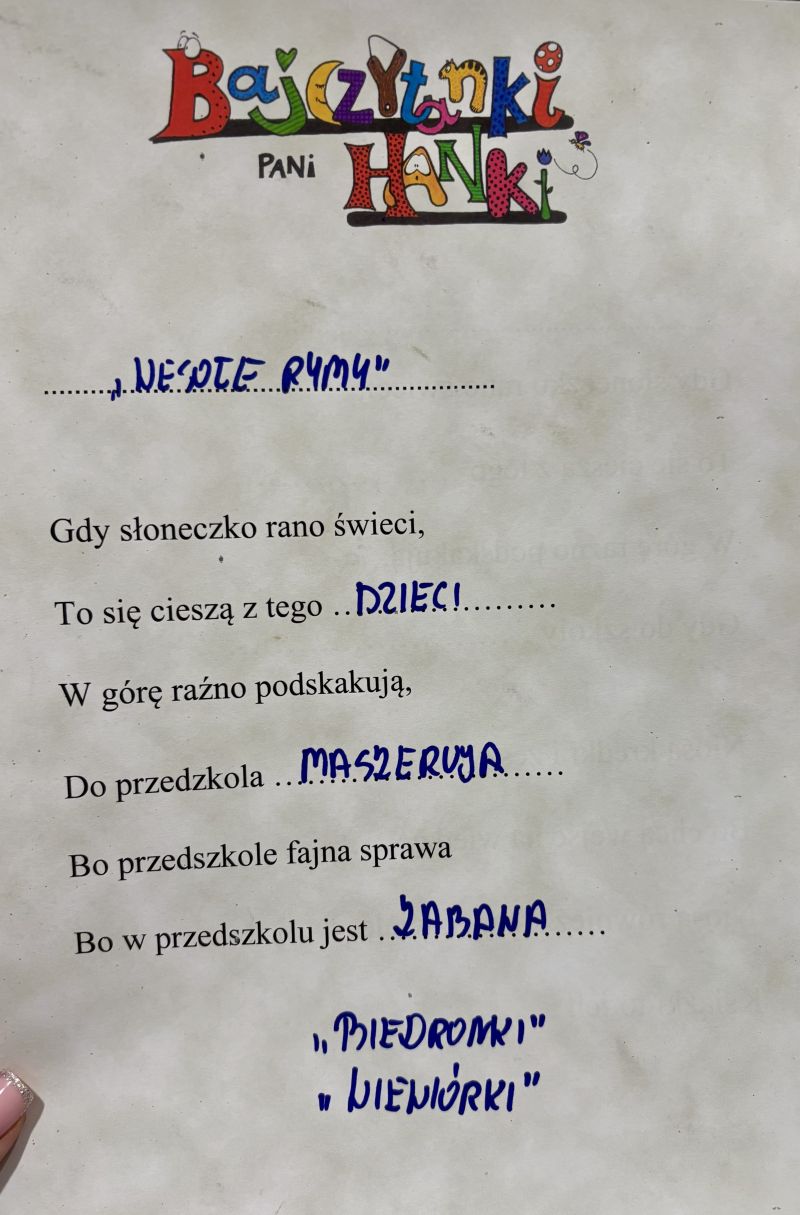 Bajczytanki
PANi HANKi
„WESOŁE RYMY”
Gdy słoneczko rano świeci,
To się cieszą z tego ..DZIECI..........
W górę raźno podskakują,
Do przedzkola ...MASZERUJĄ.......
Bo przedszkole fajna sprawa
Bo w przedszkolu jest ...ZABAWA.......
„BIEDRONKI”
„WIEWIÓRKI”